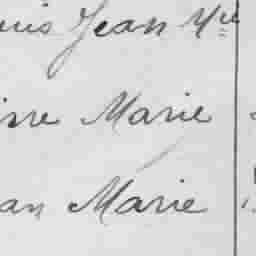 uis Jean Mie
rre Marie
an Marie